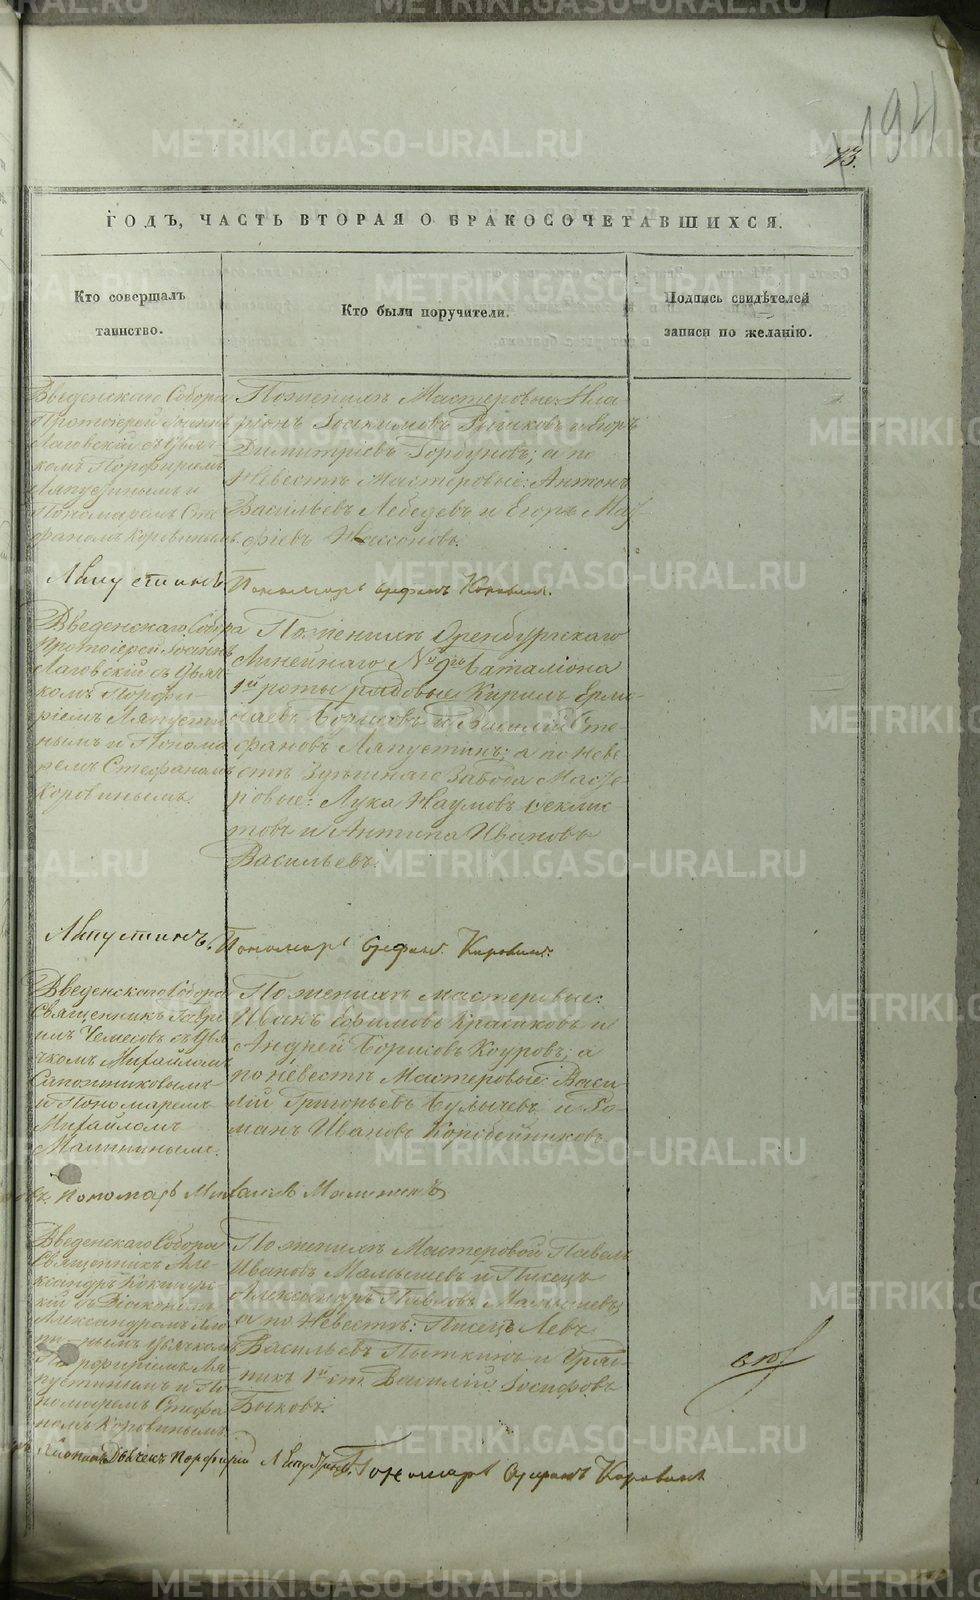 194
73.
ГОДЪ, ЧАСТЬ ВТОРАЯ О БРАКОСОЧЕТАВШИХСЯ.
Кто совершалъ
таинство.
Кто были поручители.
Подпись свидѣтелей
записи по желанію.
Введенскаго Собора
Протоіерей Іоаннъ
Лаговскій съ Дьяч-
комъ Порфиріемъ
Ляпустинымъ и
Пономаремъ Сте-
фаномъ Коровинымъ.
По женихѣ Мастеровые: Ила
ріонъ Іоакимовъ и Егоръ
Димитріевъ Горбуновъ; а по
Невестѣ Мастеровые: Антонъ
Васильевъ Лебедевъ и Егоръ Мат
фіевъ
Ляпустинъ. Пономарь Стефанъ Коровинъ.
Введенскаго Собора
Протоіерей Іоаннъ
Лаговскій съ Дьяч-
комъ Порфи-
ріемъ Ляпусти
нымъ и Понома
ремъ Стефаномъ
Коровинымъ.
По женихѣ Оренбургскаго
Линейнаго № 9го баталіона
1й роты рядовые Кирилъ Ермо
лаевъ Борисовъ и Василій Сте
фановъ Ляпустинъ; а по неве
стѣ Здѣшняго Завода Масте
ровые: Лука Наумовъ Феклис
товъ и Антипа Ивановъ
Васильевъ.
Ляпустинъ. Пономарь Стефанъ Коровинъ.
Введенскаго Собора
Священникъ Гаврі
илъ Чемесовъ съ Дья
чкомъ Михайломъ
Сапожниковымъ
и Пономаремъ
Михайломъ
Малининымъ.
По женихѣ мастеровые:
Иванъ Ефимовъ и
Андрей Борисовъ Коуровъ; а
по невестѣ Мастеровые: Васи
лій Григорьевъ Булычевъ и Ро-
манъ Ивановъ Коробейниковъ
Пономарь Михаилъ Малининъ
Введенскаго Собора
Священникъ Але-
ксандръ
съ Діакономъ
Александромъ
Дьячкомъ
Порфиріемъ Ля-
пустинымъ и По
номаремъ Стефа
номъ Коровинымъ.
По женихѣ Мастеровой Павелъ
Ивановъ Малышевъ и Писецъ
Александръ Павловъ Малышевъ;
а по Невестѣ: Писецъ Левъ
Васильевъ Пыткинъ и Уряд
никъ 1й ст. Василій Іосифовъ
Быковъ.
Дьячекъ Порфирій Ляпустинъ. Пономарь Стефанъ Коровинъ
METRIKI.GASO-URAL.RU